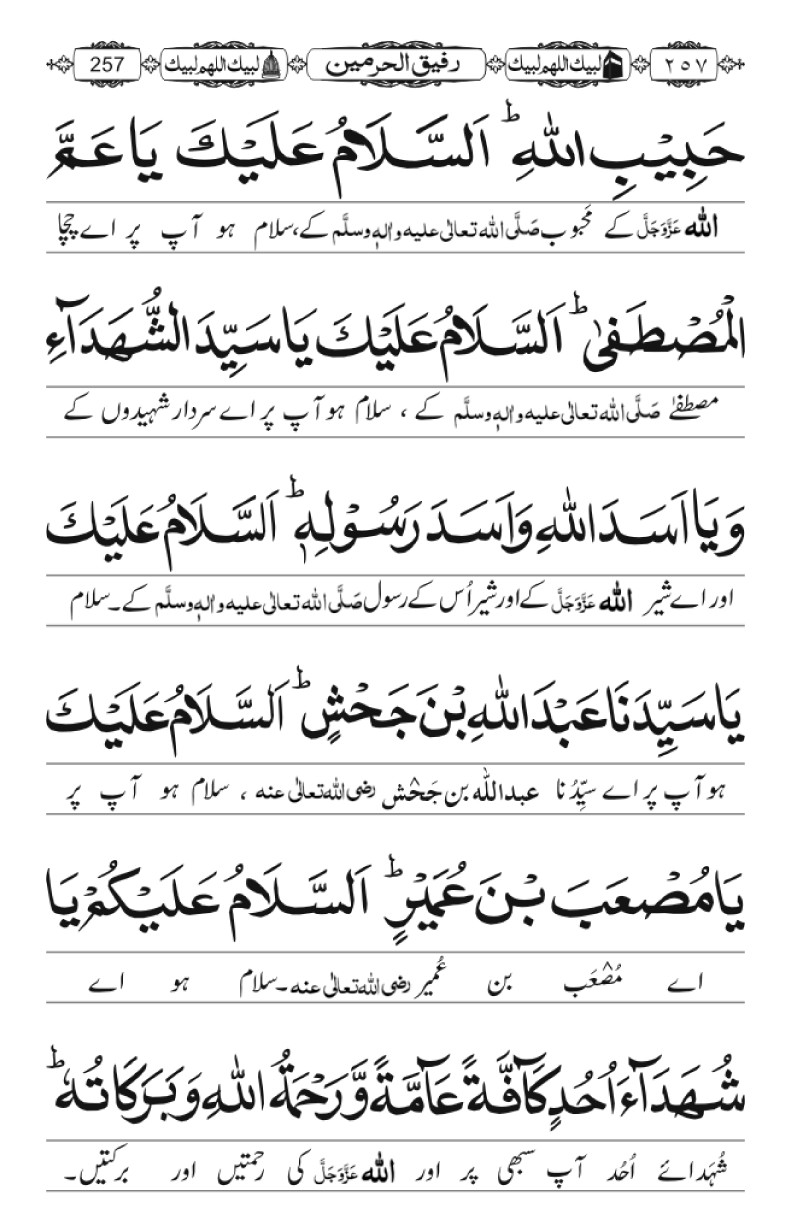 ٢٥٧ لبيك اللهم لبيك رفيق الحرمين لبيك اللهم لبيك 257
حَبِيْبِ اللهِ ؕ اَلسَّلَامُ عَلَيْكَ يَا عَمَّ
اللہ عَزَّوَجَلَّ کے مَحبوب صَلَّی اللہ تعالٰی علیہ واٰلہٖ وسلَّم کے، سلام ہو آپ پر اے چچا
الْمُصْطَفٰى ؕ اَلسَّلَامُ عَلَيْكَ يَا سَيِّدَ الشُّهَدَآءِ
مصطفےٰ صَلَّی اللہ تعالٰی علیہ واٰلہٖ وسلَّم کے ، سلام ہو آپ پر اے سردار شہیدوں کے
وَيَا اَسَدَ اللهِ وَاَسَدَ رَسُوْلِهٖ ؕ اَلسَّلَامُ عَلَيْكَ
اور اے شیر اللہ عَزَّوَجَلَّ کے اور شیر اُس کے رسول صَلَّی اللہ تعالٰی علیہ واٰلہٖ وسلَّم کے۔ سلام
يَا سَيِّدَنَا عَبْدَ اللهِ بْنَ جَحْشٍ ؕ اَلسَّلَامُ عَلَيْكَ
ہو آپ پر اے سیِّدُنا عبداللہ بن جَحْش رضی اللہ تعالٰی عنہ ، سلام ہو آپ پر
يَا مُصْعَبَ بْنَ عُمَيْرٍ ؕ اَلسَّلَامُ عَلَيْكُمْ يَا
اے مُصْعَب بن عُمیر رضی اللہ تعالٰی عنہ۔ سلام ہو اے
شُهَدَآءَ اُحُدٍ كَآفَّةً عَآمَّةً وَّرَحْمَةُ اللهِ وَبَرَكَاتُهٗ ؕ
شُہَدائے اُحُد آپ سبھی پر اور اللہ عَزَّوَجَلَّ کی رحمتیں اور برکتیں۔